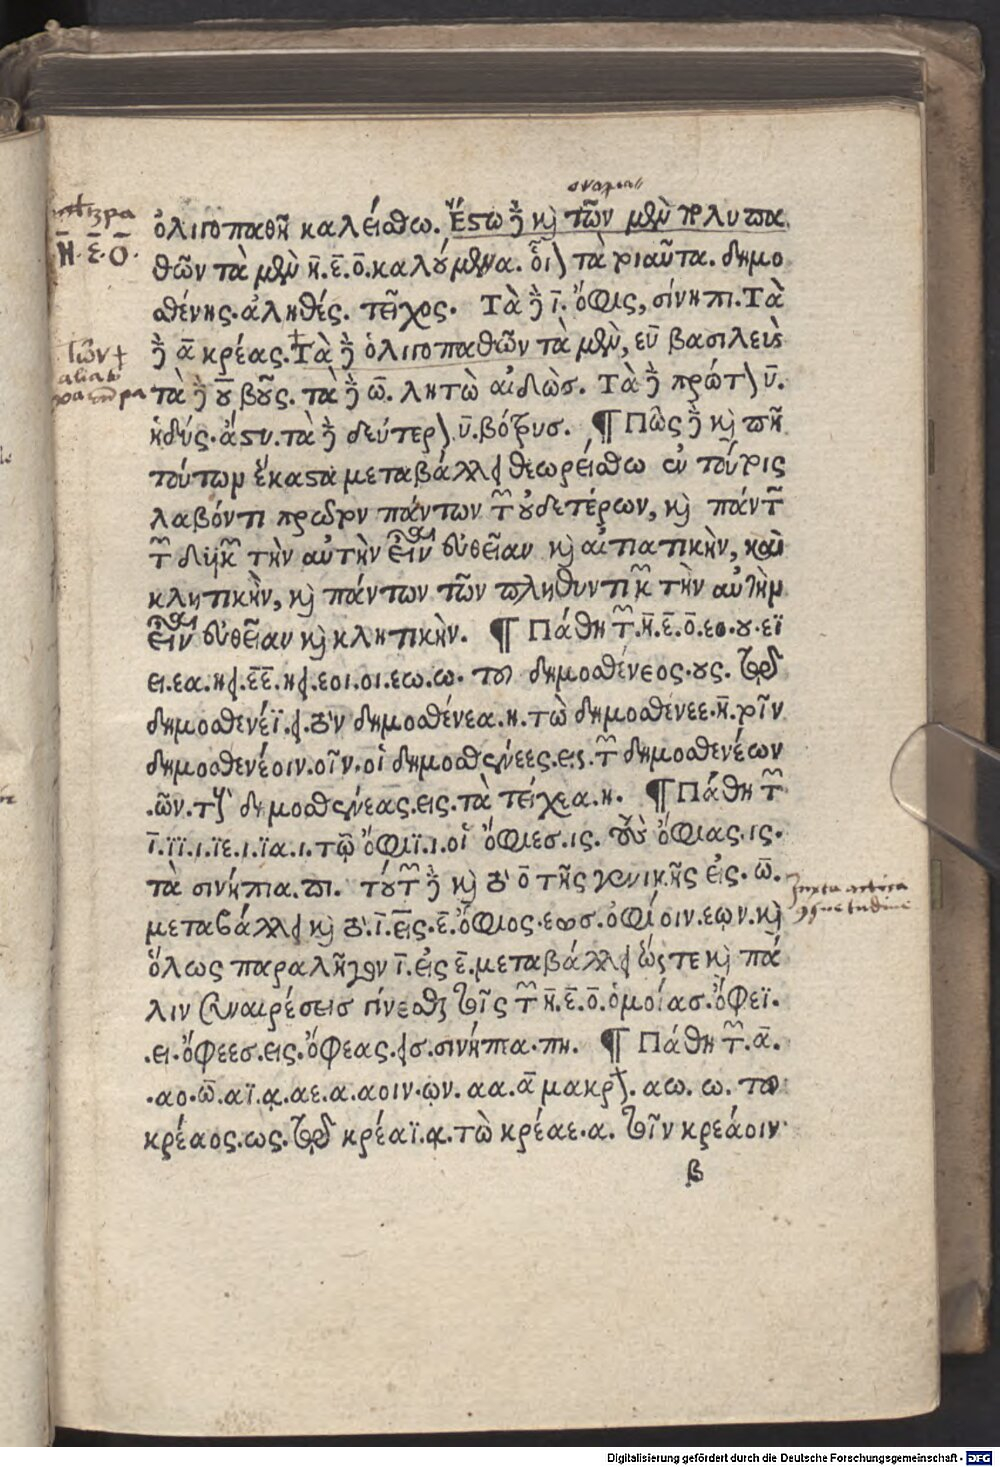 ὀλιγοπαθῆ καλείσθω. Ἔστω δὲ καὶ τῶν μὲν πολυπα
θῶν τὰ μὲν η̄. ε̄. ο̄. καλούμενα. οἷον τὰ τοιαῦτα. δημο
σθένης. ἀληθές. τεῖχος. Τὰ δὲ ῑ. ὄφις, σίνηπι. Τὰ
δὲ ᾱ κρέας. Τὰ δὲ ὀλιγοπαθῶν τὰ μὲν, εῡ βασιλεὺς
τὰ δὲ ο̄ῡ βοῦς. τὰ δὲ ω̄. λητὼ αἰδὼσ. Τὰ δὲ πρῶτον ῡ.
ἡδύς. ἄστυ. τὰ δὲ δεύτερον ῡ. βότρυσ. ¶ Πῶς δὲ καὶ πῆ
τούτων ἕκαστα μεταβάλλει θεωρείσθω ἐν τούτοις
λαβόντι πρῶτον πάντων τῶν οὐδετέρων, καὶ πάντων
τῶν δυϊκῶν τὴν αὐτὴν εἶναι εὐθεῖαν καὶ αἰτιατικὴν, καὶ
κλητικὴν, καὶ πάντων τῶν πληθυντικῶν τὴν αὐτὴν
εἶναι εὐθεῖαν καὶ κλητικὴν. ¶ Πάθη τῶν. η̄. ε̄. ο̄. εο. ου. εϊ
ει. εα. η. ε̄ε̄. η. εοι. οι. εω. ω. τοῦ δημοσθένεος. ους. τῷ
δημοσθενέϊ. ει. τὸν δημοσθένεα. η. τὼ δημοσθένεε. η̄. τοῖν
δημοσθενέοιν. οῖν. οἱ δημοσθένεες. εις. τῶν δημοσθενέων
. ῶν. τοὺς δημοσθένεας. εις. τὰ τείχεα. η. ¶ Πάθη τῶν
ῑ. ϊϊ. ι. ϊε. ι. ϊα. ι. τῷ ὄφιϊ. ι. οἱ ὄφιεσ. ις. τοὺς ὄφιας. ις.
τὰ σινήπια. πι. τούτων δὲ καὶ τὸ ο̄ τῆς γενικῆς εἰς. ω̄.
μεταβάλλει καὶ τὸ. ῑ. εἰς. ε̄. ὄφιος. εωσ. ὀφίοιν. εῳν. καὶ
ὅλως παραλῆγον ῑ. εἰς ε̄. μεταβάλλει ὥστε καὶ πά
λιν συναιρέσεισ γίνεσθαι τοῖς τῶν η̄. ε̄. ο̄. ὁμοίασ. ὄφεϊ.
. ει. ὄφεεσ. εις. ὄφεας. εισ. σινήπεα. πη. ¶ Πάθη τῶν. ᾱ.
. αο. ω̄. αϊ. ᾳ. αε. α. αοιν. ῳν. αα. ᾱ μακρὸν. αω. ω. τοῦ
κρέαος. ως. τῷ κρέαϊ. ᾳ. τὼ κρέαε. α. τοῖν κρεάοιν
β
η̄. ε̄. ο̄.
iuxta attica
Digitalisierung gefördert durch die Deutsche Forschungsgemeinschaft - DFG